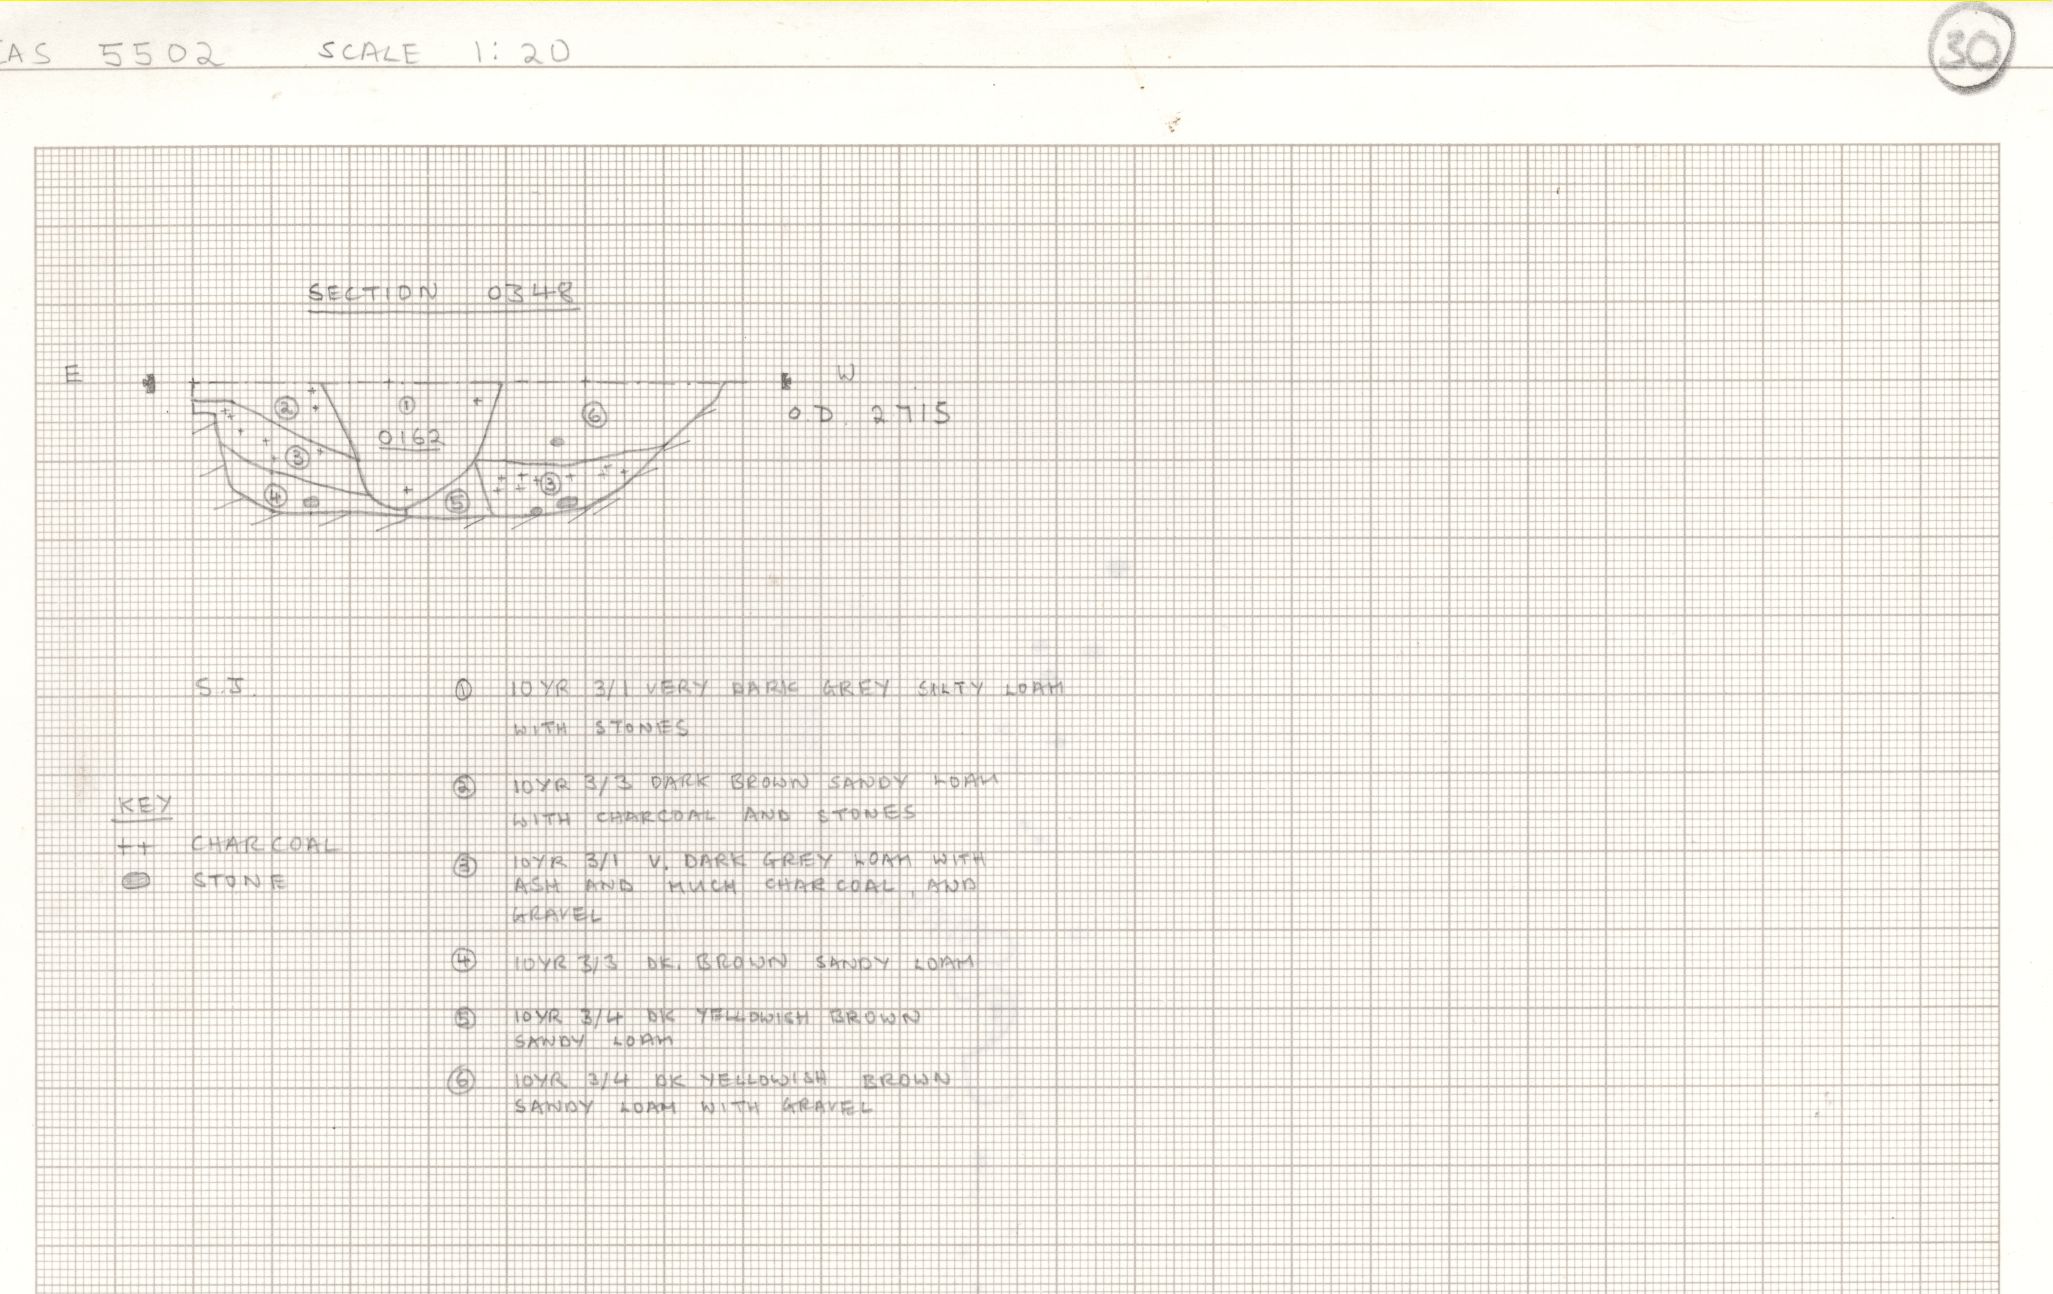 AS 5502 SCALE 1:20
30
SECTION 0348
E W
O.D. 2715
2 1 6
0162
3 3
4 5
S.J.
1 10YR 3/1 VERY DARK GREY SILTY LOAM
WITH STONES
2 10YR 3/3 DARK BROWN SANDY LOAM
WITH CHARCOAL AND STONES
3 10YR 3/1 V. DARK GREY LOAM WITH
ASH AND MUCH CHARCOAL, AND
GRAVEL
4 10YR 3/3 DK. BROWN SANDY LOAM
5 10YR 3/4 DK YELLOWISH BROWN
SANDY LOAM
6 10YR 3/4 DK YELLOWISH BROWN
SANDY LOAM WITH GRAVEL
KEY
++ CHARCOAL
STONE